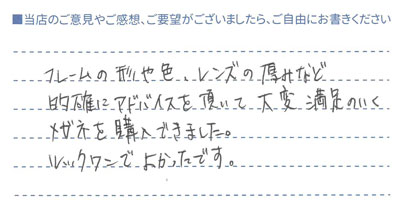 ■当店のご意見やご感想、ご要望がございましたら、ご自由にお書きください
フレームの形や色、レンズの厚みなど
的確にアドバイスを頂いて大変満足のいく
メガネを購入できました。
ルックワンでよかったです。